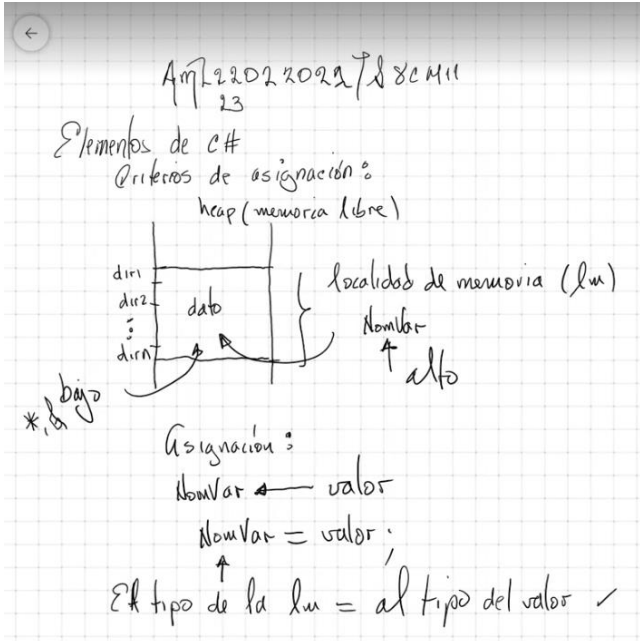 23
Elementos de C#
Criterios de asignación:
heap (memoria libre)
dir1
dir2
dato
dirn
localidad de memoria (lm)
NomVar
alto
bajo
*, &
Asignación:
NomVar ← valor
NomVar = valor;
El tipo de la lm = al tipo del valor ✓